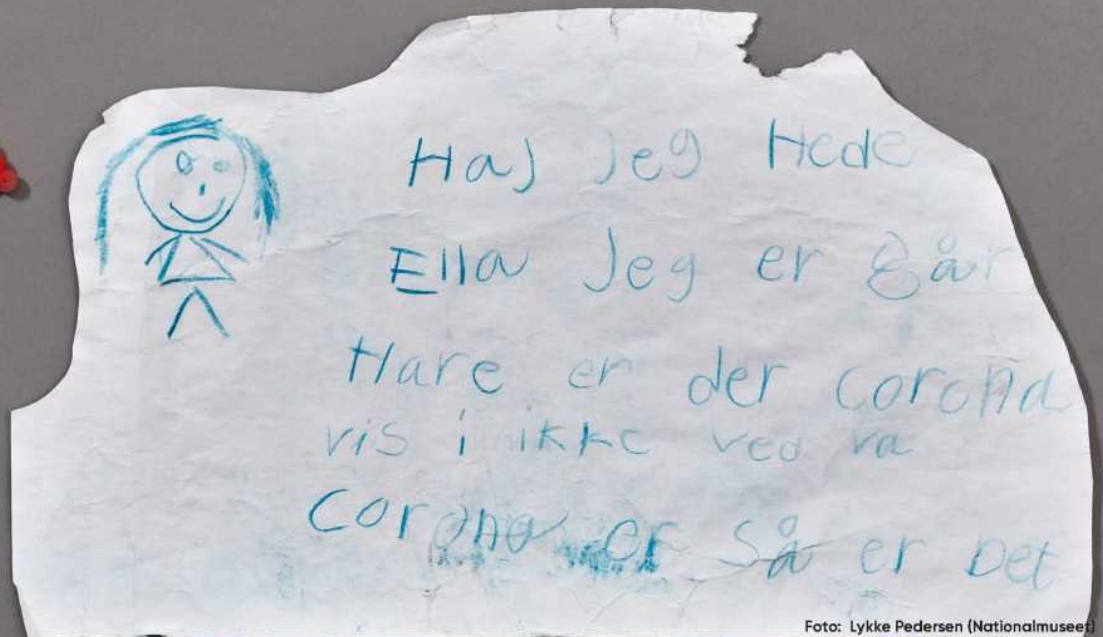 Haj jeg Hede
Ella Jeg er 8 år
Hare er der corona
vis i ikke ved va
corona er så er Det
Foto: Lykke Pedersen (Nationalmuseet)